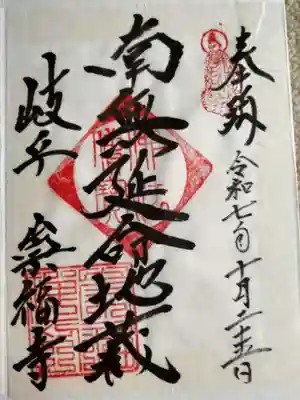 奉納
令和七年十月二十五日
南無延命地蔵
岐阜
崇福寺